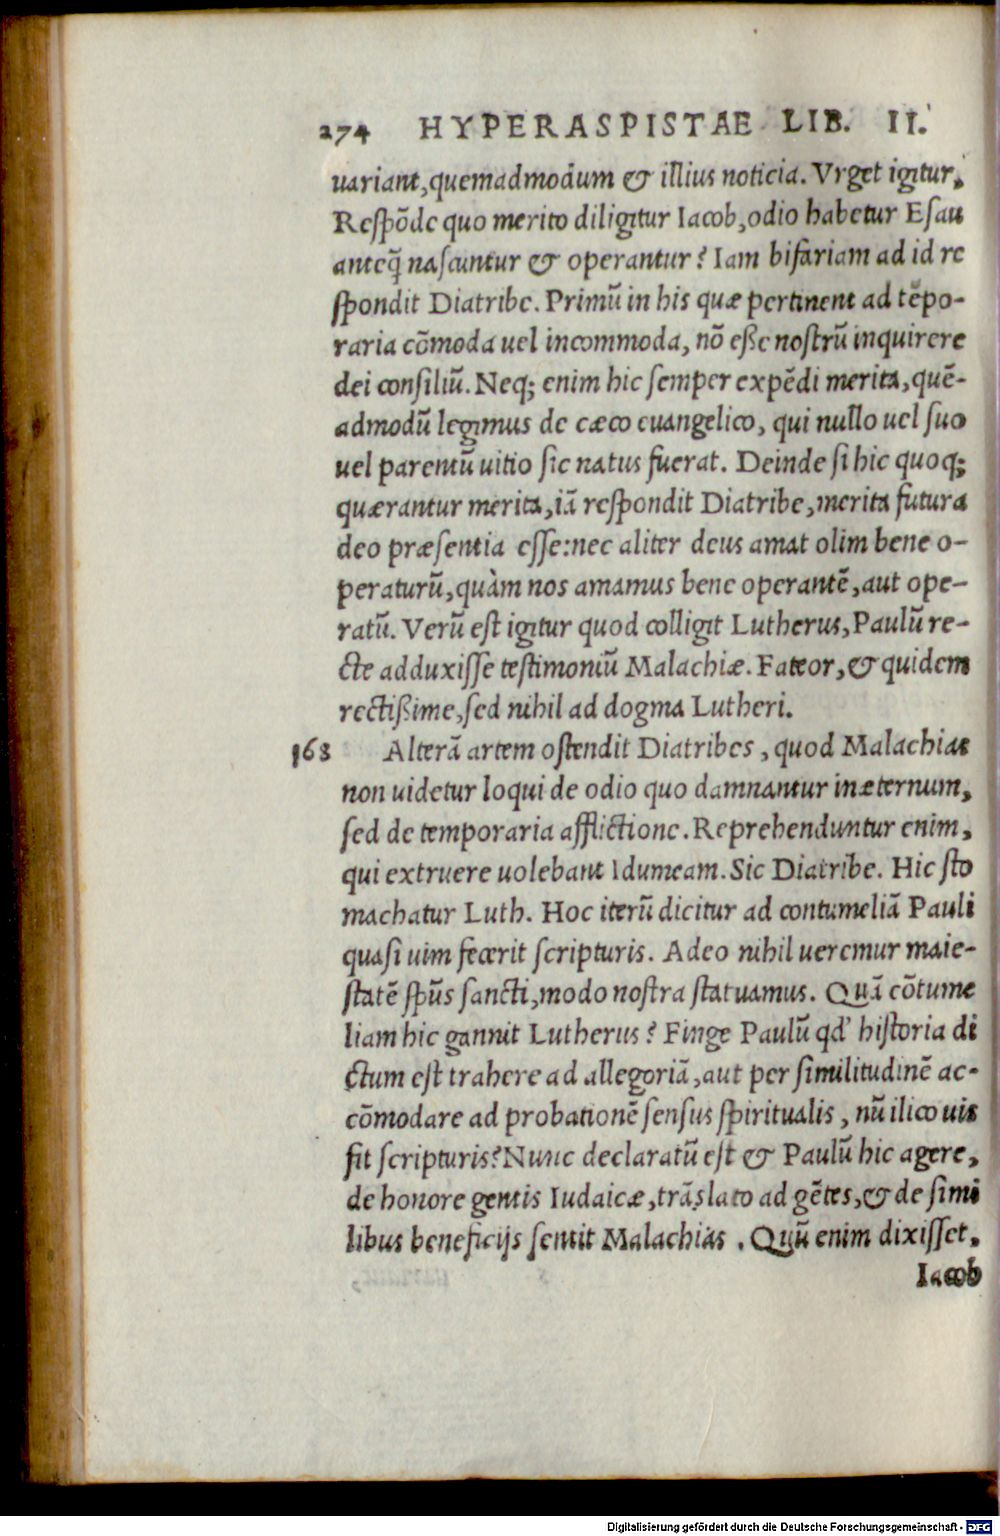 274 HYPERASPISTAE LIB. II.
uariant, quemadmodum & illius noticia. Vrget igitur,
Respōde quo merito diligitur Iacob, odio habetur Esau
anteq̃ nascuntur & operantur? Iam bifariam ad id re
spondit Diatribe. Primū in his quæ pertinent ad tēpo-
raria cōmoda uel incommoda, nō eße nostrū inquirere
dei consiliū. Neq; enim hic semper expēdi merita, quē-
admodū legimus de cæco euangelico, qui nullo uel suo
uel parentū uitio sic natus fuerat. Deinde si hic quoq;
quærantur merita, iā respondit Diatribe, merita futura
deo præsentia esse: nec aliter deus amat olim bene o-
peraturū, quàm nos amamus bene operantē, aut ope-
ratū. Verū est igitur quod colligit Lutherus, Paulū re-
cte adduxisse testimoniū Malachiæ. Fateor, & quidem
rectißime, sed nihil ad dogma Lutheri.
168 Alterā artem ostendit Diatribes, quod Malachias
non uidetur loqui de odio quo damnantur inæternum,
sed de temporaria afflictione. Reprehenduntur enim,
qui extruere uolebant Idumeam. Sic Diatribe. Hic sto
machatur Luth. Hoc iterū dicitur ad contumeliā Pauli
quasi uim fecerit scripturis. Adeo nihil ueremur maie-
statē spūs sancti, modo nostra statuamus. Quā cōtume
liam hic gannit Lutherus? Finge Paulū qd' historia di
ctum est trahere ad allegoriā, aut per similitudinē ac-
cōmodare ad probationē sensus spiritualis, nū ilico uis
fit scripturis? Nunc declaratū est & Paulū hic agere,
de honore gentis Iudaicæ, trāslato ad gētes, & de simi
libus beneficijs sentit Malachias. Quū enim dixisset,
Iacob
Digitalisierung gefördert durch die Deutsche Forschungsgemeinschaft - DFG